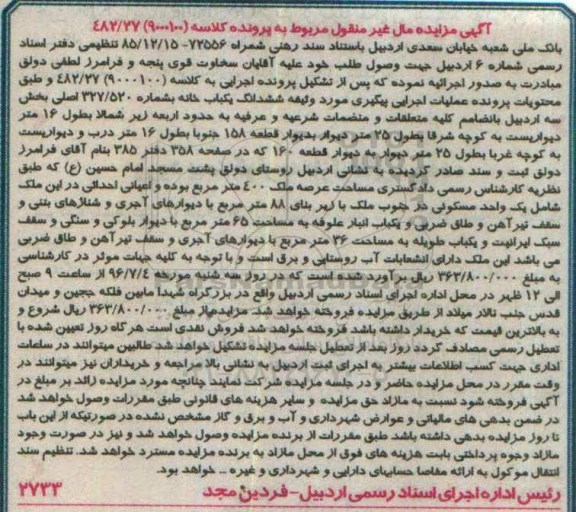 آگهی مزایده مال غیر منقول مربوط به پرونده کلاسه (۹۰۰۰۱۰۰) ۴۸۲/۲۷
بانک ملی شعبه خیابان سعدی اردبیل باستناد سند رهنی شمراه ۷۲۵۵۶- ۸۵/۱۲/۱۵ تنظیمی دفتر اسناد
رسمی شماره ۶ اردبیل جهت وصول طلب خود علیه آقایان سخاوت قوی پنجه و فرامرز لطفی دولق
مبادرت به صدور اجرائیه نموده که پس از تشکیل پرونده اجرایی به کلاسه (۹۰۰۰۱۰۰) ۴۸۲/۲۷ و طبق
محتویات پرونده عملیات اجرایی پیگیری مورد وثیقه ششدانگ یکباب خانه بشماره ۳۲۷/۵۲۰ اصلی بخش
سه اردبیل بانضمام کلیه متعلقات و منضمات شرعیه و عرفیه به حدود اربعه زیر شمالا بطول ۱۶ متر
دیواریست به کوچه شرقا بطول ۲۵ متر دیوار بدیوار قطعه ۱۵۸ جنوبا بطول ۱۶ متر درب و دیواریست
به کوچه غربا بطول ۲۵ متر دیوار به دیوار قطعه ۱۶۰ که در صفحه ۳۵۸ دفتر ۳۸۵ بنام آقای فرامرز
دولق ثبت و سند صادر گردیده به نشانی اردبیل روستای دولق پشت مسجد امام حسین (ع) که طبق
نظریه کارشناس رسمی دادگستری مساحت عرصه ملک ۴۰۰ متر مربع بوده و اعیانی احداثی در این ملک
شامل یک واحد مسکونی در جنوب ملک با زیر بنای ۸۸ متر مربع با دیوارهای آجری و شناژهای بتنی و
سقف تیرآهن و طاق ضربی و یکباب انبار علوفه به مساحت ۶۵ متر مربع با دیوار بلوکی و سنگی و سقف
سبک ایرانیت و یکباب طویله به مساحت ۳۶ متر مربع با دیوارهای آجری و سقف تیرآهن و طاق ضربی
می باشد این ملک دارای انشعابات آب روستایی و برق است و با توجه به کلیه جهات موثر در کارشناسی
به مبلغ ۳۶۳/۸۰۰/۰۰۰ ریال برآورد شده است که در روز سه شنبه مورخه ۹۶/۷/۴ از ساعت ۹ صبح
الی ۱۲ ظهر در محل اداره اجرای اسناد رسمی اردبیل واقع در بزرگراه شهدا مابین فلکه ججین و میدان
قدس جنب تالار میلاد از طریق مزایده فروخته خواهد شد. مزایده از مبلغ ۳۶۳/۸۰۰/۰۰۰ ریال شروع و
به بالاترین قیمت که خریدار داشته باشد فروخته خواهد شد فروش نقدی است هر گاه روز تعیین شده با
تعطیل رسمی مصادف گردد روز بعد از تعطیل جلسه مزایده تشکیل خواهد شد طالبین میتوانند در ساعات
اداری جهت کسب اطلاعات بیشتر به اجرای ثبت اردبیل به نشانی بالا مراجعه و خریداران نیز میتوانند در
وقت مقرر در محل مزایده حاضر و در جلسه مزایده شرکت نمایند چنانچه مورد مزایده زائد بر مبلغ در
آگهی فروخته شود نسبت به مازاد حق مزایده و سایر هزینه های قانونی طبق مقررات وصول خواهد شد
در ضمن بدهی های مالیاتی و عوارض شهرداری و آب و برق و گاز مشخص نشده در صورتیکه از این باب
تا روز مزایده بدهی داشته باشد طبق مقررات از برنده مزایده وصول خواهد شد و نیز در صورت وجود
مازاد وجوه پرداختی بابت هزینه های فوق از محل مازاد به برنده مزایده مسترد خواهد شد. تنظیم سند
انتقال موکول به ارائه مفاصا حسابهای دارایی و شهرداری و غیره ... خواهد بود.
رئیس اداره اجرای اسناد رسمی اردبیل-فردین مجد ۲۷۳۳